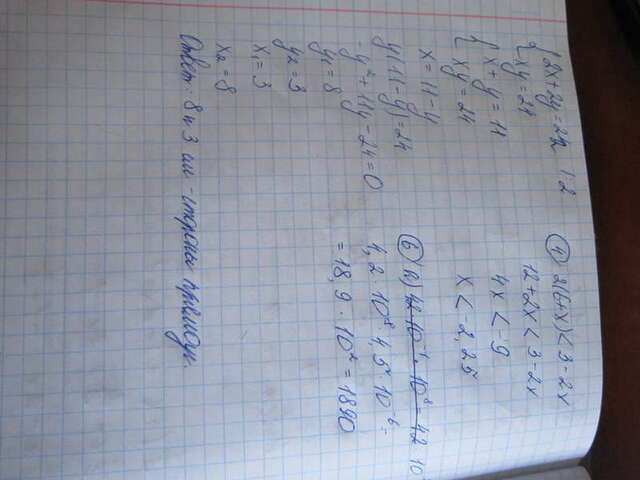 { 2x + 2y = 22 | : 2
{ xy = 24
{ x + y = 11
{ xy = 24
x = 11 - y
y(11 - y) = 24
-y² + 11y - 24 = 0
y₁ = 8
y₂ = 3
x₁ = 3
x₂ = 8
Ответ: 8 и 3 см - стороны прямоуг.
④ 2(6+x) < 3 - 2x
12 + 2x < 3 - 2x
4x < -9
x < -2,25
4,2 · 10⁸ · 4,5 · 10⁻⁶ =
= 18,9 · 10² = 1890